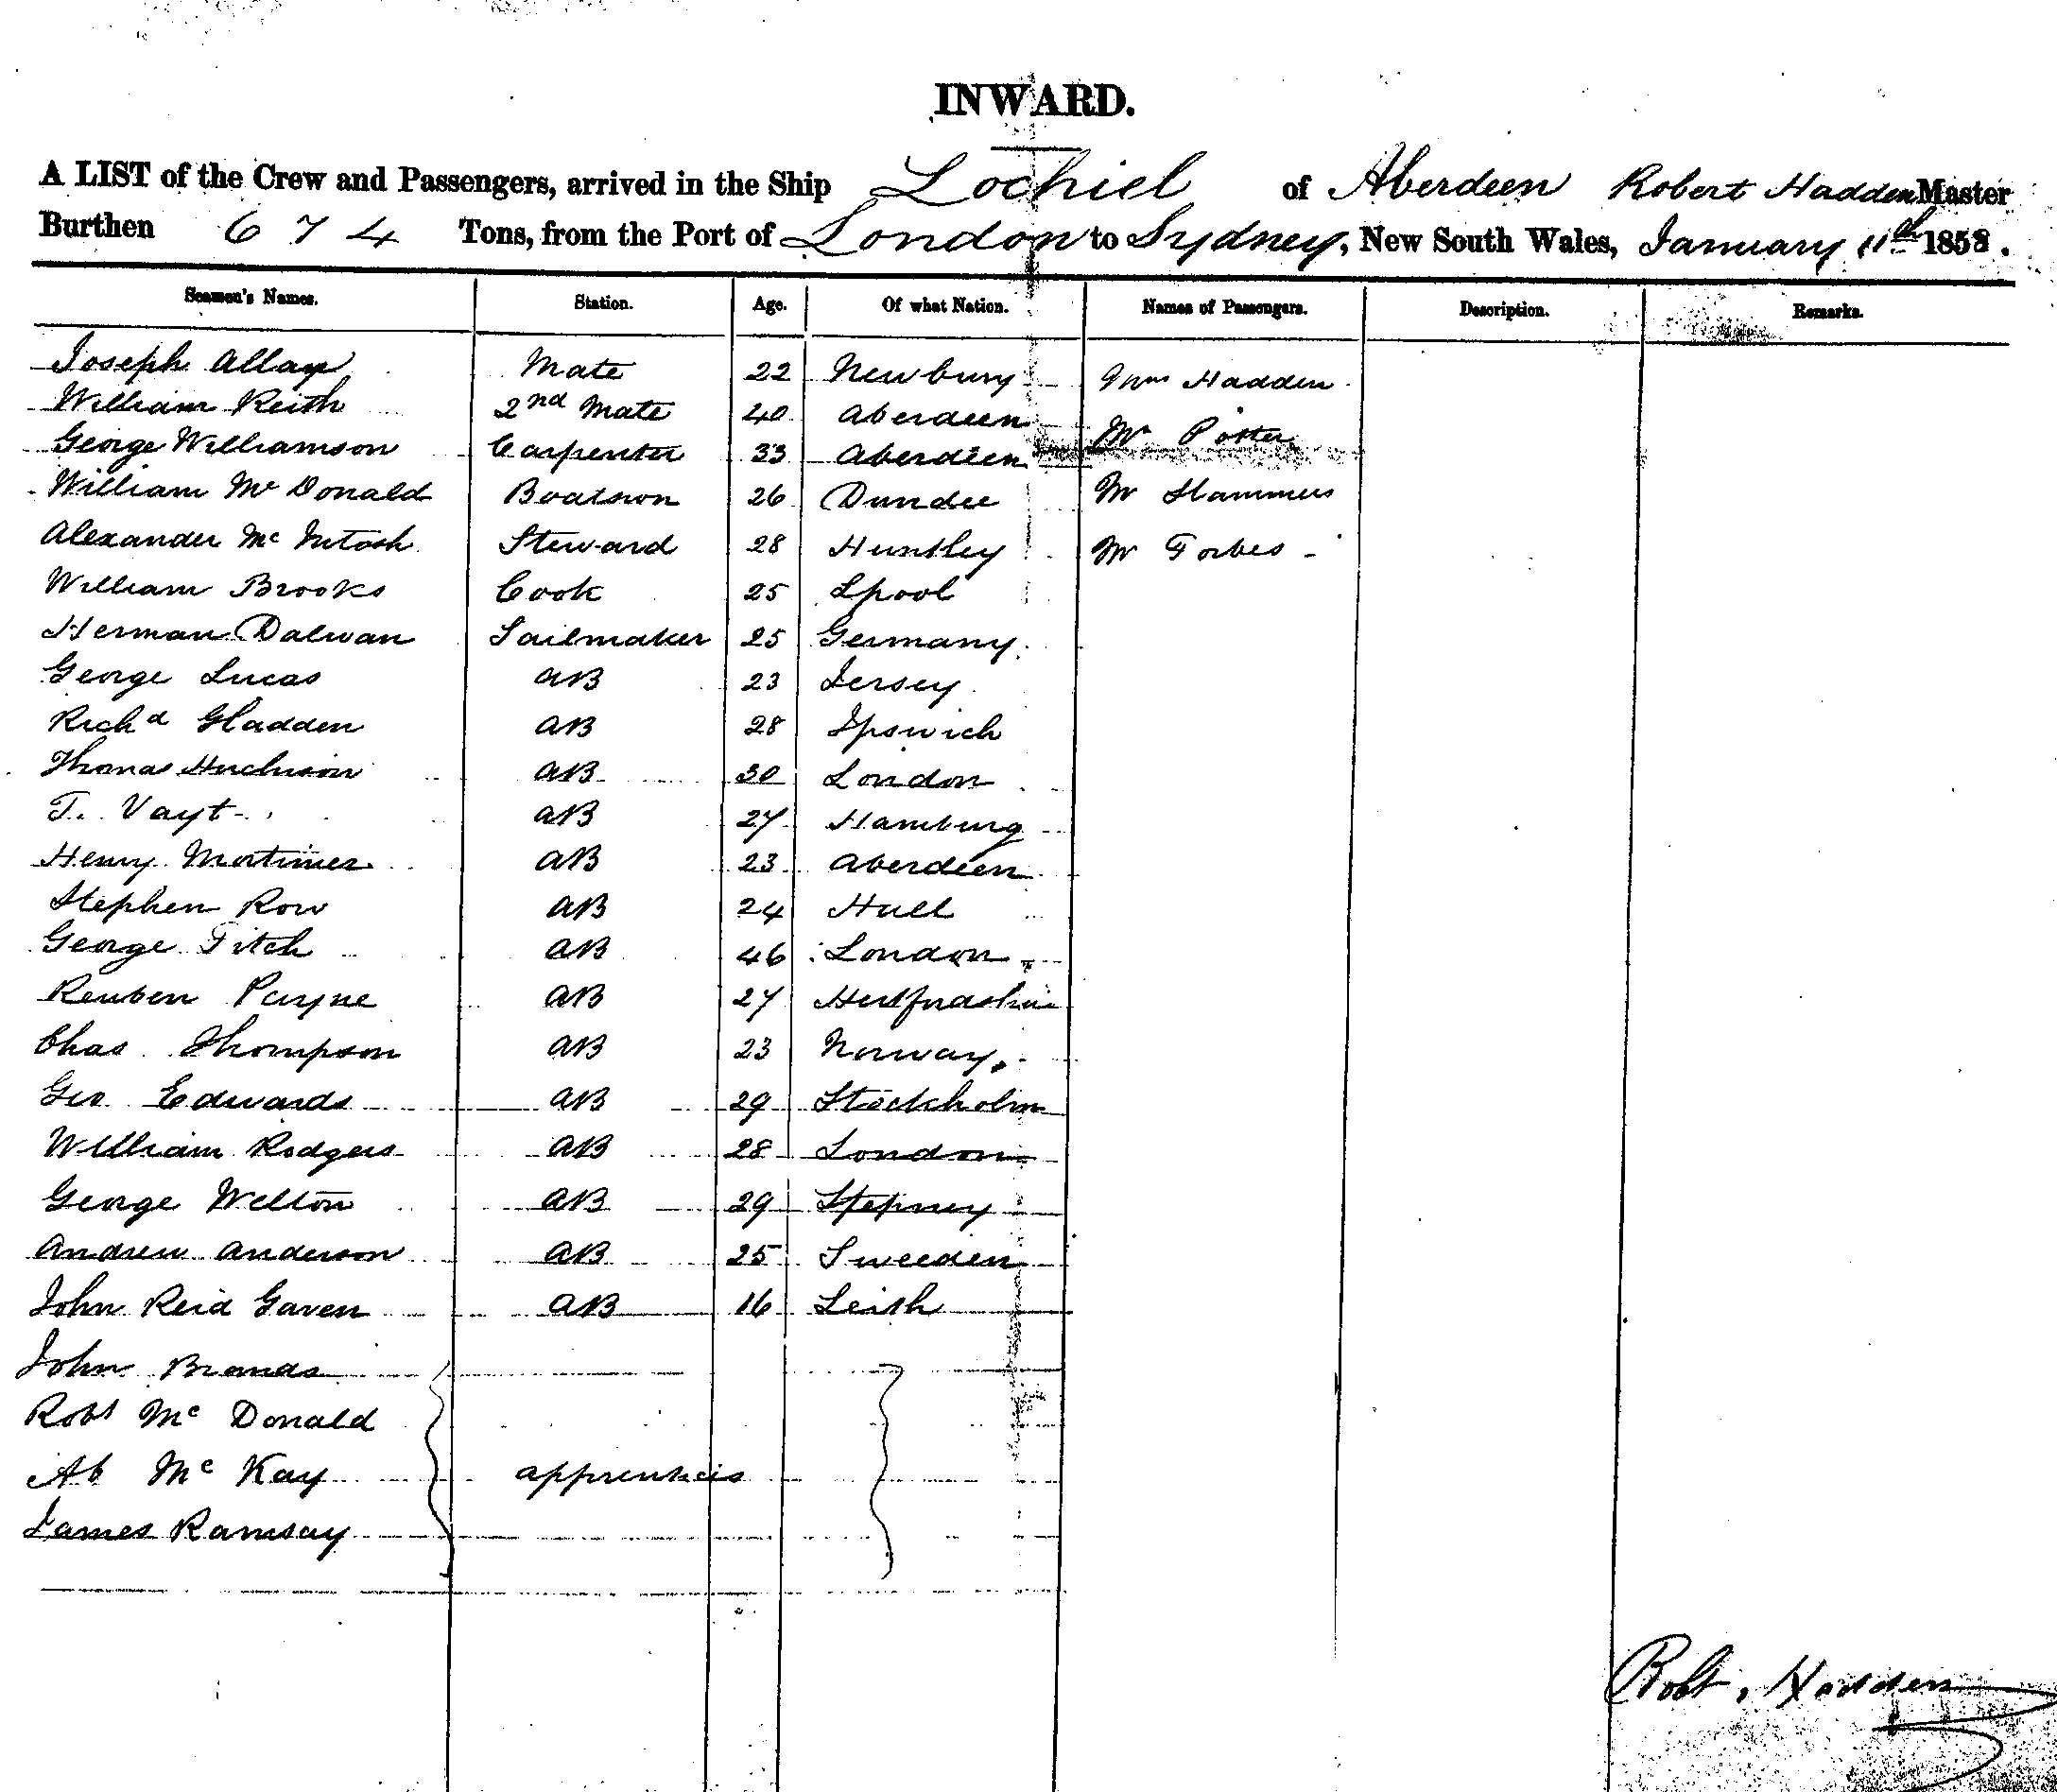 INWARD.
A LIST of the Crew and Passengers, arrived in the Ship Lochiel of Aberdeen Robert Hadden Master
Burthen 674 Tons, from the Port of London to Sydney, New South Wales, January 11th 1858.
Seamen's Names. Station. Age. Of what Nation. Names of Passengers. Description. Remarks.
Joseph Allan Mate 22 Newbury Hadden
William Keith 2nd Mate 40 Aberdeen
George Williamson Carpenter 33 Aberdeen Mr Potter
William Mc Donald Boatswn 26 Dundee Mr Hammers
Alexander Mc Intosh Steward 28 Huntley Mr Forbes
William Brooks Cook 25 Lpool
Herman Dalwan Sailmaker 25 Germany
George Lucas AB 23 Jersey
Richd Gladden AB 28 Ipswich
Thomas Huchison AB 30 London
T. Vayt AB 27 Hamburg
Henry Mortimer AB 23 Aberdeen
Stephen Row AB 24 Hull
George Fitch AB 46 London
Reuben Payne AB 27 Hertfordshire
Chas Thompson AB 23 Norway
Geo Edwards AB 29 Stockholm
William Rodgers AB 28 London
George Welton AB 29 Stepney
Andrew Anderson AB 25 Sweeden
John Reid Gaven AB 16 Leith
John Brands
Robt Mc Donald
Mc Kay apprentices
James Ramsay
Robt. Hadden